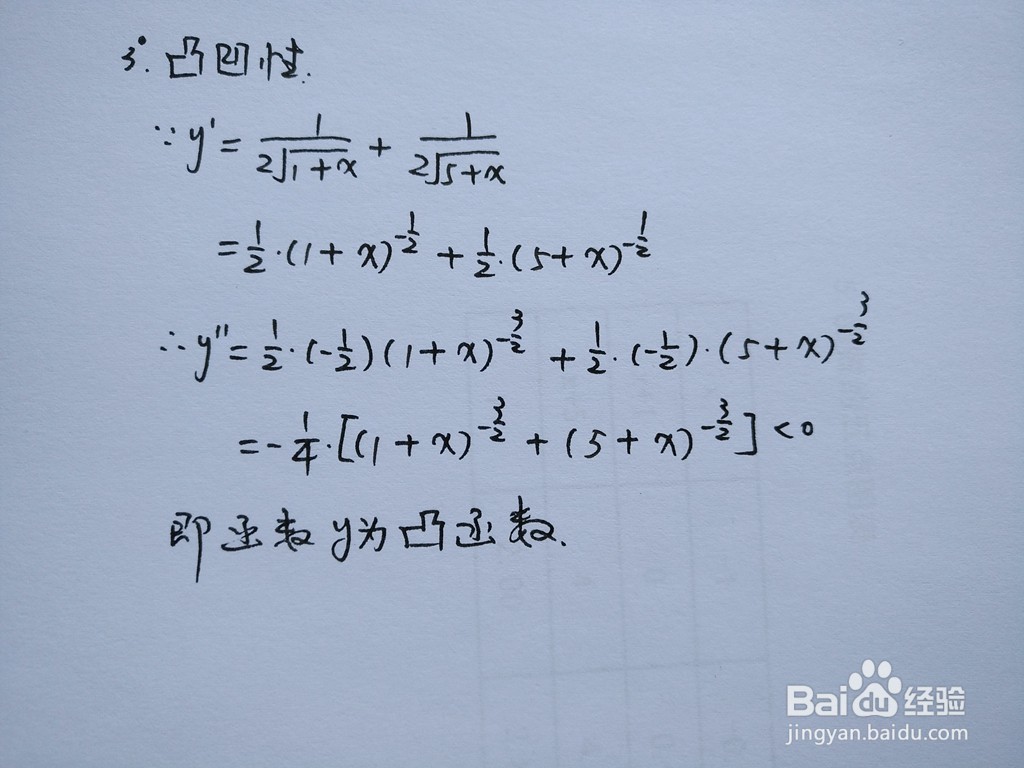 3°. 凸凹性.
∵y' = 1/(2√(1+x)) + 1/(2√(5+x))
= 1/2·(1+x)^(-1/2) + 1/2·(5+x)^(-1/2)
∴y'' = 1/2·(-1/2)(1+x)^(-3/2) + 1/2·(-1/2)·(5+x)^(-3/2)
= -1/4·[(1+x)^(-3/2) + (5+x)^(-3/2)] <0
即函数y为凸函数.
Baidu经验
jingyan.baidu.com